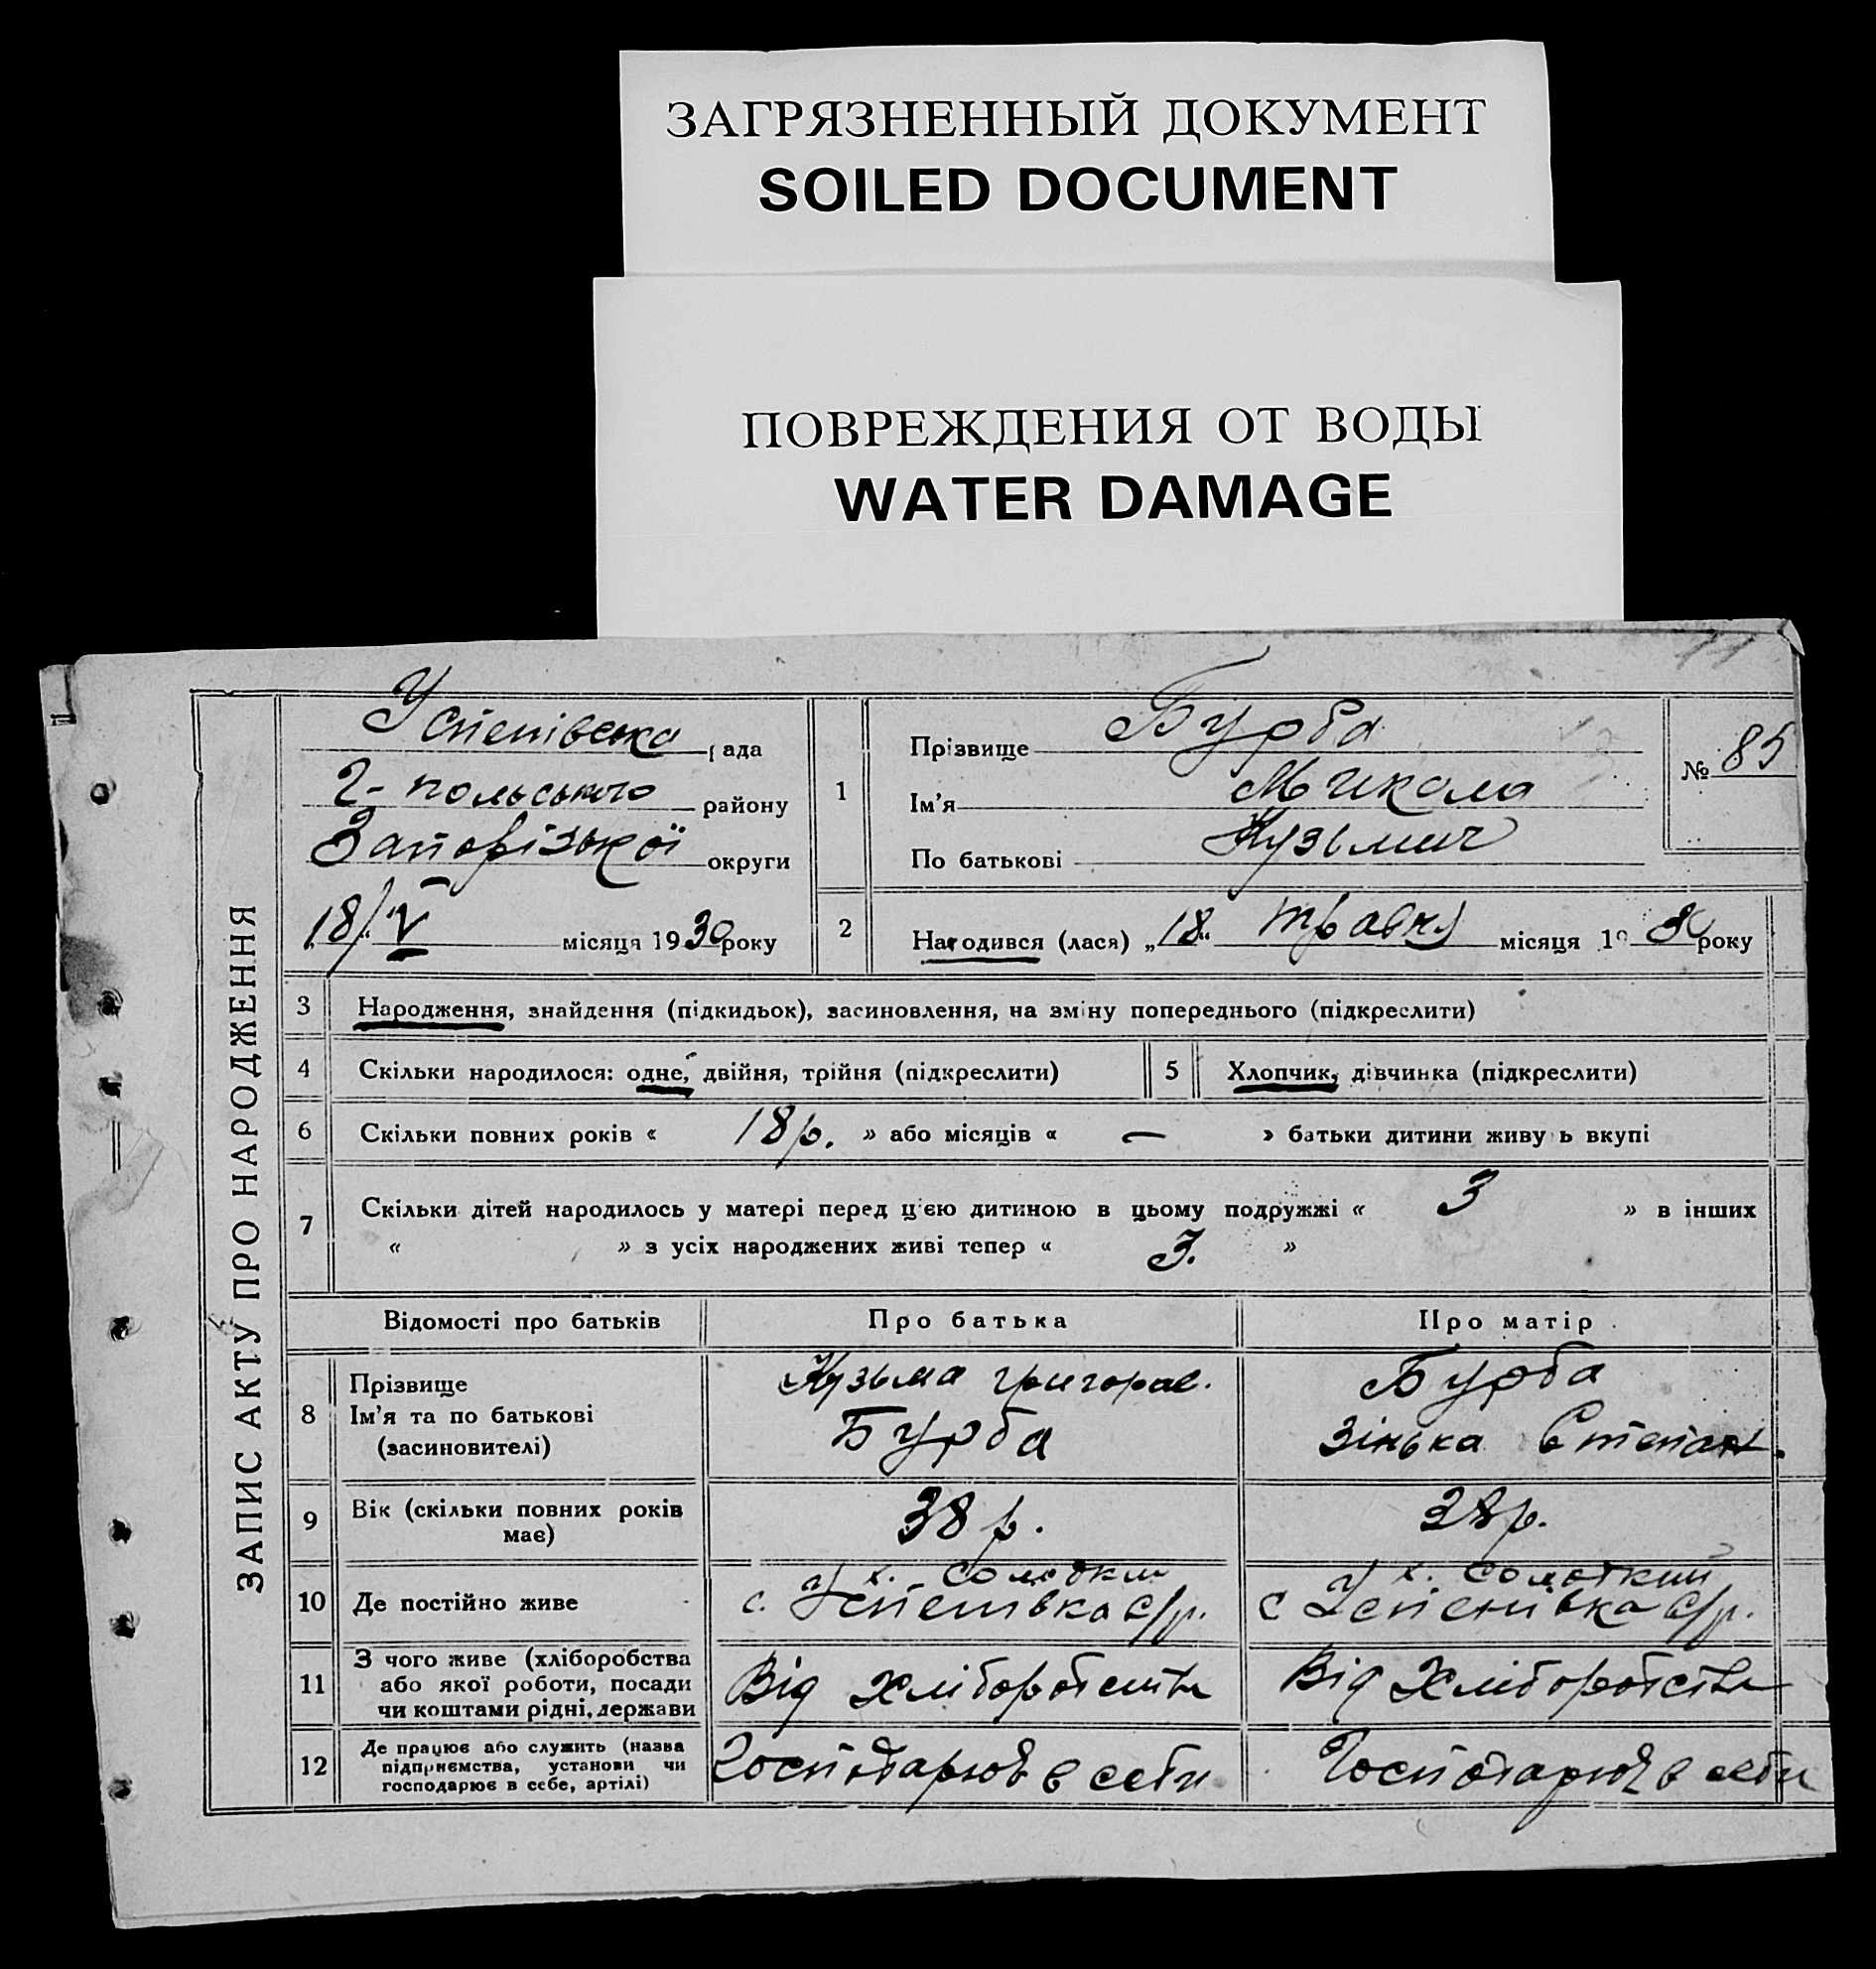 ЗАГРЯЗНЕННЫЙ ДОКУМЕНТ
SOILED DOCUMENT
ПОВРЕЖДЕНИЯ ОТ ВОДЫ
WATER DAMAGE
11
ЗАПИС АКТУ ПРО НАРОДЖЕННЯ
Успенівська рада
Г-польського району
Запорізької округи
18/V місяця 1930 року
1
Прізвище Бурба
Ім'я Микола
По батькові Кузьмич
№ 85
2 Народився (лася) „18“ травня місяця 1930 року
3 Народження, знайдення (підкидьок), засиновлення, на зміну попереднього (підкреслити)
4 Скільки народилося: одне, двійня, трійня (підкреслити)
5 Хлопчик, дівчинка (підкреслити)
6 Скільки повних років « 18 р. » або місяців « — » батьки дитини живуть вкупі
7 Скільки дітей народилось у матері перед цією дитиною в цьому подружжі « 3 » в інших
« » з усіх народжених живі тепер « 3. »
Відомості про батьків Про батька Про матір
8 Прізвище
Ім'я та по батькові
(засиновителі)
Кузьма Григоров.
Бурба
Бурба
Зінька Степан.
9 Вік (скільки повних років
має)
38 р.
38 р.
10 Де постійно живе
х. Солодкий
с. Успенівка с/р.
х. Солодкий
с Успенівка с/р.
11 З чого живе (хліборобства
або якої роботи, посади
чи коштами рідні, держави
Від хліборобств
Від хліборобств
12 Де працює або служить (назва
підприємства, установи чи
господарює в себе, артілі)
Господарює в себи
Господарює в себи